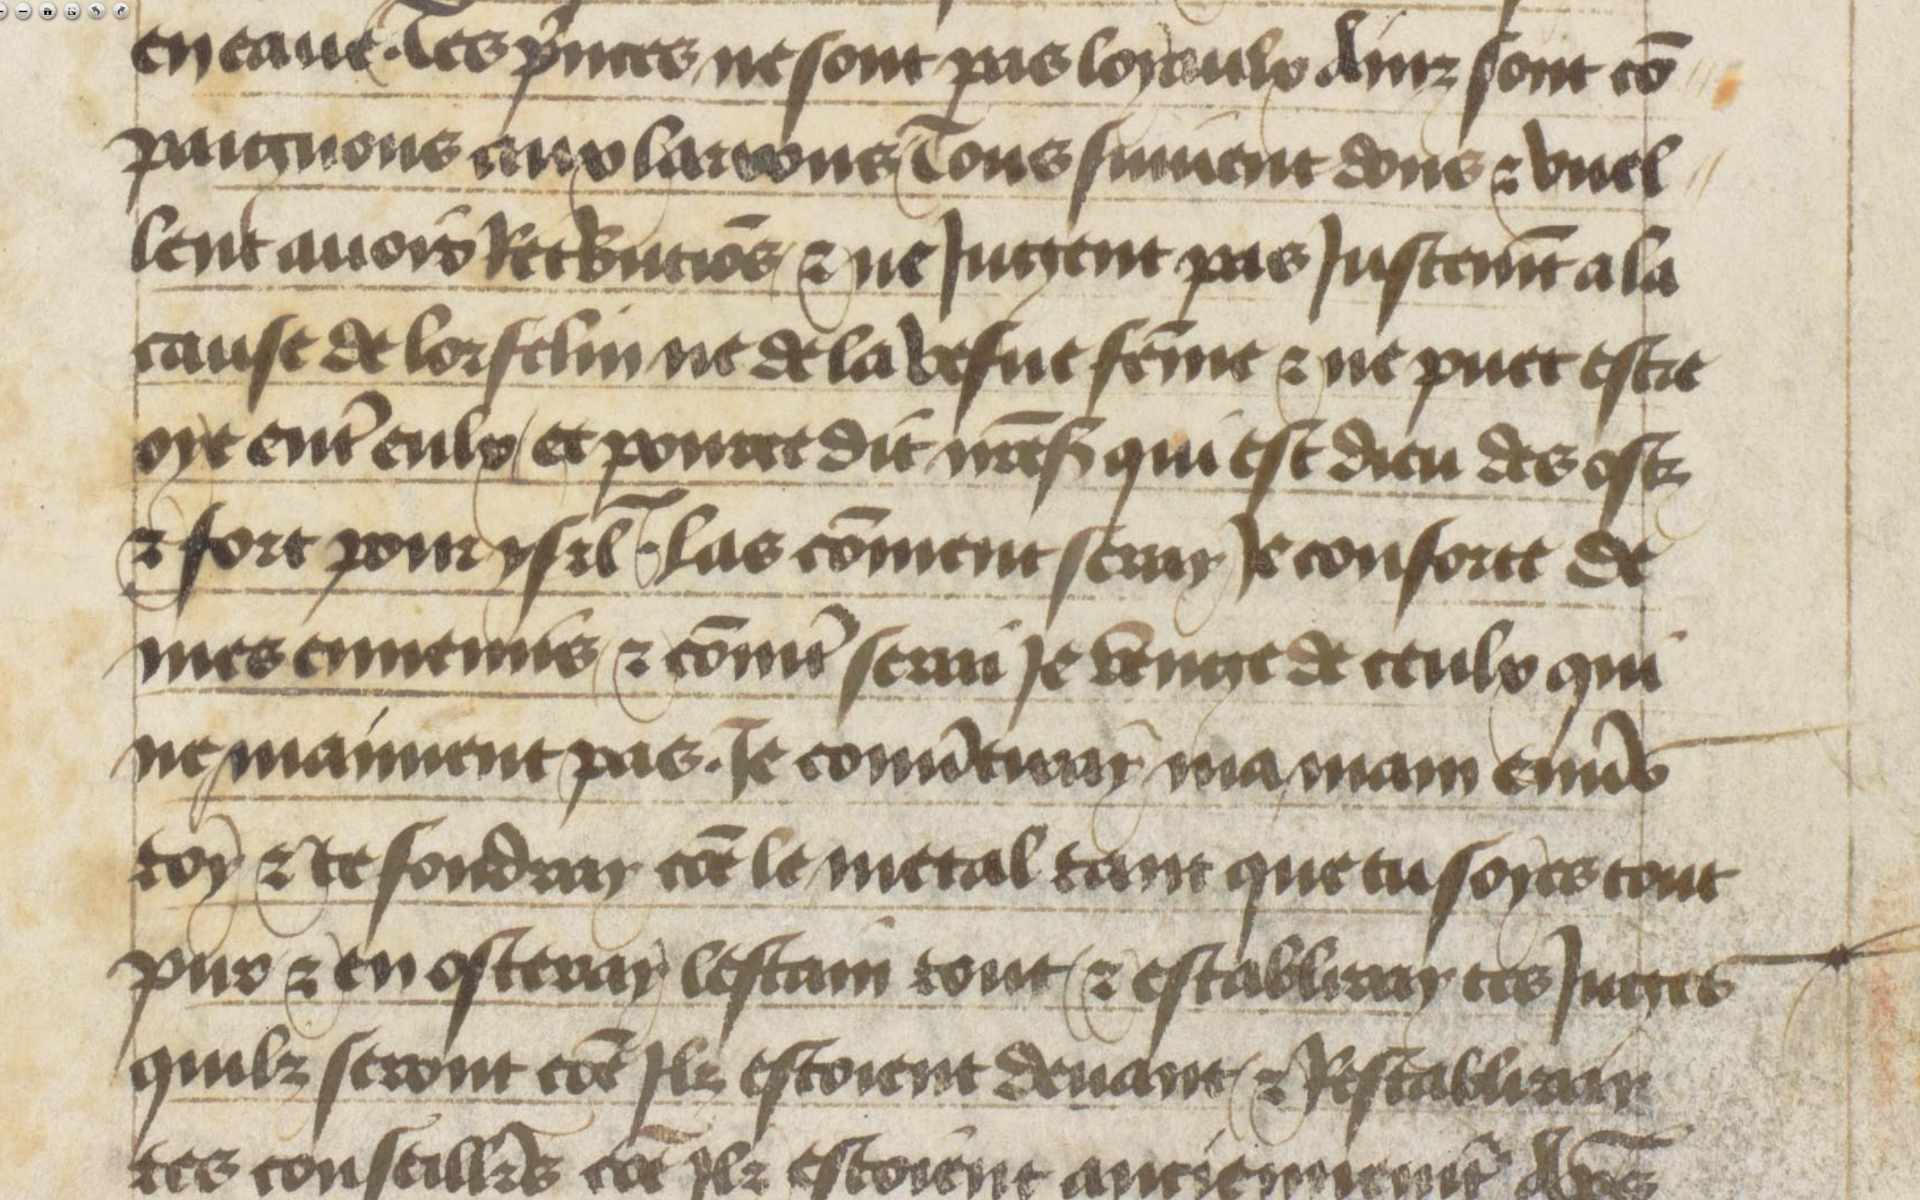 en eaue. Tes p̾nces ne sont pas loyaulx Ainz sont cō
paignons aux larrons Tous suiuent dons ⁊ vuel
lent auoir Retbuciōs ⁊ ne Jugent pas Justemt̄ a la
cause de lorfelin ne de la vefue fēme ⁊ ne puet estre
oye ent̾ eulx et pource dit nrēs̄ qui est dieu des ostz
⁊ fort pour isrl̄ . Las cōment seray Je conforte de
mes ennemis ⁊ cōmt̾ serai Je venge de ceulx qui
ne maiment pas. Je conu̾tiray ma main enu̾s
toy ⁊ te fondray cōe le metal tant que tu soyes tout
pur ⁊ en osteray lestain tout ⁊ establiray tes Juges
quilz seront cōe Jlz estoient deuant ⁊ Restabliray
tes conseill̾rs cōe Jlz estoient anciennemt̾